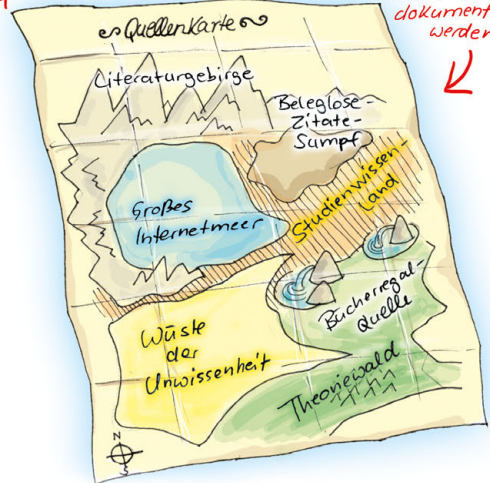 Quellenkarte
dokument
werden
Literaturgebirge
Beleglose-
Zitate-
Sumpf
Studienwissen-
Land
Großes
Internetmeer
Bücherregal-
Quelle
Wüste
der
Unwissenheit
Theoriewald
N
S